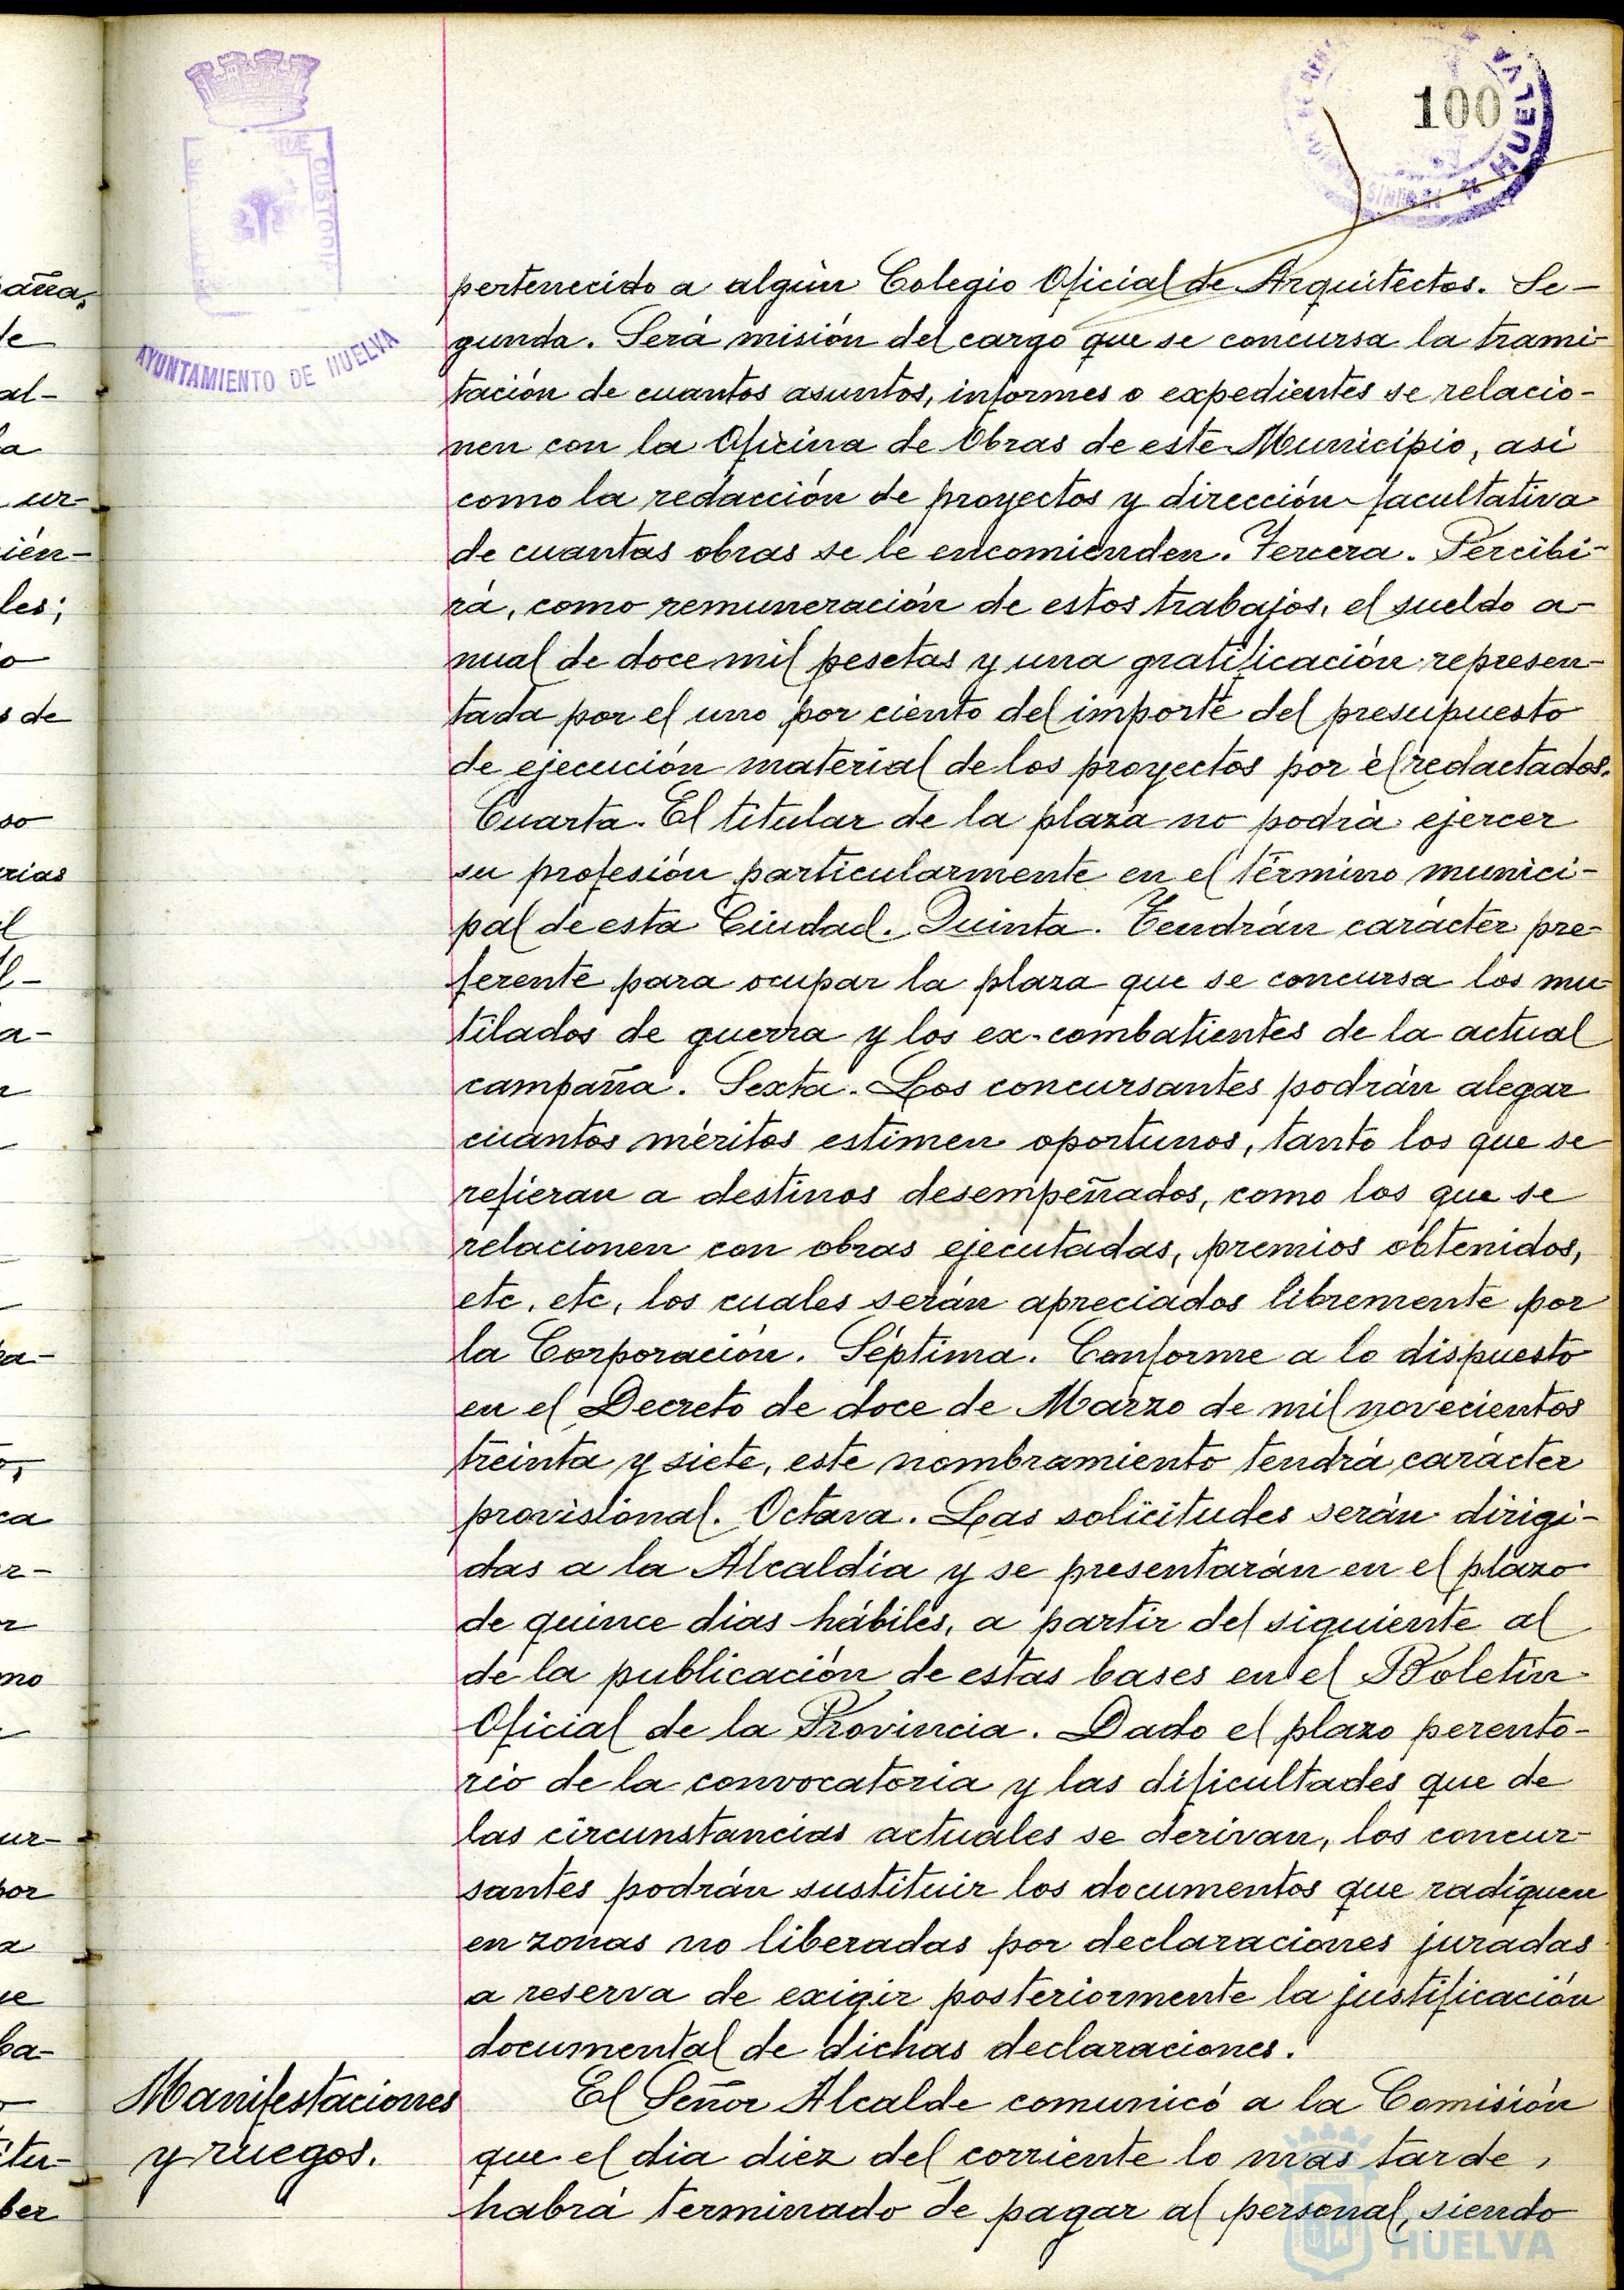 100
AYUNTAMIENTO DE HUELVA
pertenecido a algún Colegio Oficial de Arquitectos. Se-
gunda. Será misión del cargo que se concursa la trami-
tación de cuantos asuntos, informes o expedientes se relacio-
nen con la Oficina de Obras de este Municipio, así
como la redacción de proyectos y dirección facultativa
de cuantas obras se le encomienden. Tercera. Percibi-
rá, como remuneración de estos trabajos, el sueldo a-
nual de doce mil pesetas y una gratificación represen-
tada por el uno por ciento del importe del presupuesto
de ejecución material de los proyectos por él redactados.
Cuarta. El titular de la plaza no podrá ejercer
su profesión particularmente en el término munici-
pal de esta Ciudad. Quinta. Tendrán carácter pre-
ferente para ocupar la plaza que se concursa los mu-
tilados de guerra y los ex-combatientes de la actual
campaña. Sexta. Los concursantes podrán alegar
cuantos méritos estimen oportunos, tanto los que se
refieran a destinos desempeñados, como los que se
relacionen con obras ejecutadas, premios obtenidos,
etc, etc, los cuales serán apreciados libremente por
la Corporación. Séptima. Conforme a lo dispuesto
en el Decreto de doce de Marzo de mil novecientos
treinta y siete, este nombramiento tendrá carácter
provisional. Octava. Las solicitudes serán dirigi-
das a la Alcaldía y se presentarán en el plazo
de quince días hábiles, a partir del siguiente al
de la publicación de estas bases en el Boletín
Oficial de la Provincia. Dado el plazo perento-
rio de la convocatoria y las dificultades que de
las circunstancias actuales se derivan, los concur-
santes podrán sustituir los documentos que radiquen
en zonas no liberadas por declaraciones juradas
a reserva de exigir posteriormente la justificación
documental de dichas declaraciones.
Manifestaciones
y ruegos.
El Señor Alcalde comunicó a la Comisión
que el día diez del corriente lo mas tarde,
habrá terminado de pagar al personal, siendo
HUELVA